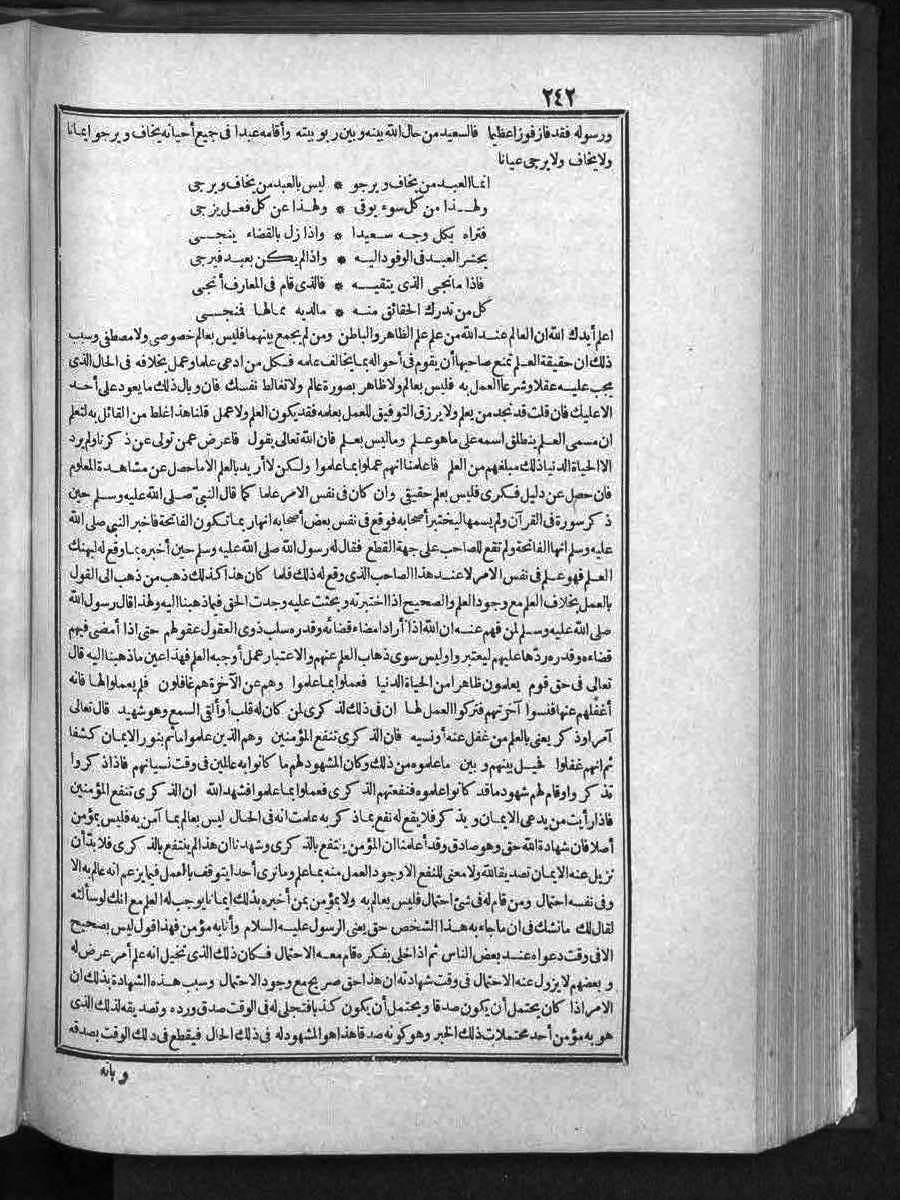 ٢٤٢
ورسوله فقد فاز فوزا عظيما فالسعيد من حال الله بينه وبين ربوبيته وأقامه عبدا فى جميع أحيانه يخاف ويرجو ايمانا
ولا يخاف ولا يرجى عيانا
انما العبد من يخاف ويرجو * ليس بالعبد من يخاف ويرجى
ولهذا من كل سوء يوقى * ولهذا عن كل فعل يزجى
فتراه بكل وجه سعيدا * واذا زل بالقضاء ينجى
يحشر العبد فى الوفود اليه * واذا لم يكن بعبد فيرجى
فاذا ما نجى الذى يتقيه * فالذى قام فى المعارف أنجى
كل من تدرك الحقائق منه * ما لديه مما لها فنجى
اعلم أيدك الله ان العالم عند الله من علم علم الظاهر والباطن ومن لم يجمع بينهما فليس بعالم خصوصى ولا مصطفى وسبب
ذلك ان حقيقة العلم تمنع صاحبها أن يقوم فى أحواله بما يخالف علمه فكل من ادعى علما وعمل بخلافه فى الحال الذى
يجب عليه عقلا وشرعا العمل به فليس بعالم ولا ظاهر بصورة عالم ولا تغالط نفسك فان وبال ذلك ما يعود على أحد
الا عليك فان قلت قد نجد من يعلم ولا يرزق التوفيق للعمل بعلمه فقد يكون العلم ولا عمل قلنا هذا غلط من القائل به لتعلم
ان مسمى العلم ينطلق اسمه على ما هو علم وما ليس بعلم فان الله تعالى يقول فاعرض عمن تولى عن ذكرنا ولم يرد
الا الحياة الدنيا ذلك مبلغهم من العلم فاعلمنا انهم عملوا بما علموا ولكن لا أريد بالعلم الا ما حصل عن مشاهدة المعلوم
فان حصل عن دليل فكرى فليس بعلم حقيقى وان كان فى نفس الامر علما كما قال النبى صلى الله عليه وسلم حين
ذكر سورة فى القرآن ولم يسمها ليختبر أصحابه فوقع فى نفس بعض أصحابه انها ربما تكون الفاتحة فاخبر النبى صلى الله
عليه وسلم انها الفاتحة ولم تقع للصاحب على جهة القطع فقال له رسول الله صلى الله عليه وسلم حين أخبره بما وقع له ليهنك
العلم فهو علم فى نفس الامر لا عند هذا الصاحب الذى وقع له ذلك فلما كان هذا كذلك ذهب من ذهب الى القول
بالعمل بخلاف العلم مع وجود العلم والصحيح اذا اختبرته وبحثت عليه وجدت الحق فيما ذهبنا اليه ولهذا قال رسول الله
صلى الله عليه وسلم لمن فهم عنه ان الله اذا أراد امضاء قضائه وقدره سلب ذوى العقول عقولهم حتى اذا أمضى فيهم
قضاءه وقدره ردها عليهم ليعتبروا وليس سوى ذهاب العلم عنهم والاعتبار عمل أوجبه العلم فهذا عين ما ذهبنا اليه قال
تعالى فى حق قوم يعلمون ظاهرا من الحياة الدنيا فعملوا بما علموا وهم عن الآخرة هم غافلون فلم يعملوا لها فانه
أغفلهم عنها فنسوا آخرتهم فتركوا العمل لها ان فى ذلك لذكرى لمن كان له قلب أو ألقى السمع وهو شهيد قال تعالى
آمرا وذكر يعنى بالعلم من غفل عنه أو نسيه فان الذكرى تنفع المؤمنين وهم الذين علموا ما ثم بنور الايمان كشفا
ثم انهم غفلوا فحيل بينهم وبين ما علموه من ذلك وكان المشهود لهم ما كانوا به عالمين فى وقت نسيانهم فاذا ذكروا
تذكروا وقام لهم شهود ما قد كانوا علموه فنفعتهم الذكرى فعملوا بما علموا فشهد الله ان الذكرى تنفع المؤمنين
فاذا رأيت من يدعى الايمان ويذكر فلا يقع له نفع بما ذكر به علمت انه فى الحال ليس بعالم بما آمن به فليس بمؤمن
أصلا فان شهادة الله حق وهو صادق وقد أعلمنا ان المؤمن ينتفع بالذكرى وشهدنا ان هذا لم ينتفع بالذكرى فلا بد أن
نزيل عنه الايمان تصديقا لله ولا معنى للنفع الا وجود العمل منه بما علم وما نرى أحدا يتوقف بالعمل فيما يزعم انه عالم به الا
وفى نفسه احتمال ومن قام له فى شئ احتمال فليس بعالم به ولا بمؤمن بمن أخبره بذلك ايمانا يوجب له العلم مع انك لو سألته
لقال لك ما نشك فى ان ما جاء به هذا الشخص حق يعنى الرسول عليه السلام وأنا به مؤمن فهذا قول ليس بصحيح
الا فى وقت دعواه عند بعض الناس ثم اذا خلى بفكره قام معه الاحتمال فكان ذلك الذى تخيل انه علم أمر عرض له
وبعضهم لا يزول عنه الاحتمال فى وقت شهادته ان هذا حق صريح مع وجود الاحتمال وسبب هذه الشهادة بذلك ان
الامر اذا كان يحتمل أن يكون صدقا ويحتمل أن يكون كذبا فتجلى له فى الوقت صدق ورده وتصديقه لذلك الذى
هو به مؤمن أحد محتملات ذلك الخبر وهو كونه صدقا هذا هو المشهود له فى ذلك الحال فيقطع فى ذلك الوقت بصدقه
وبانه